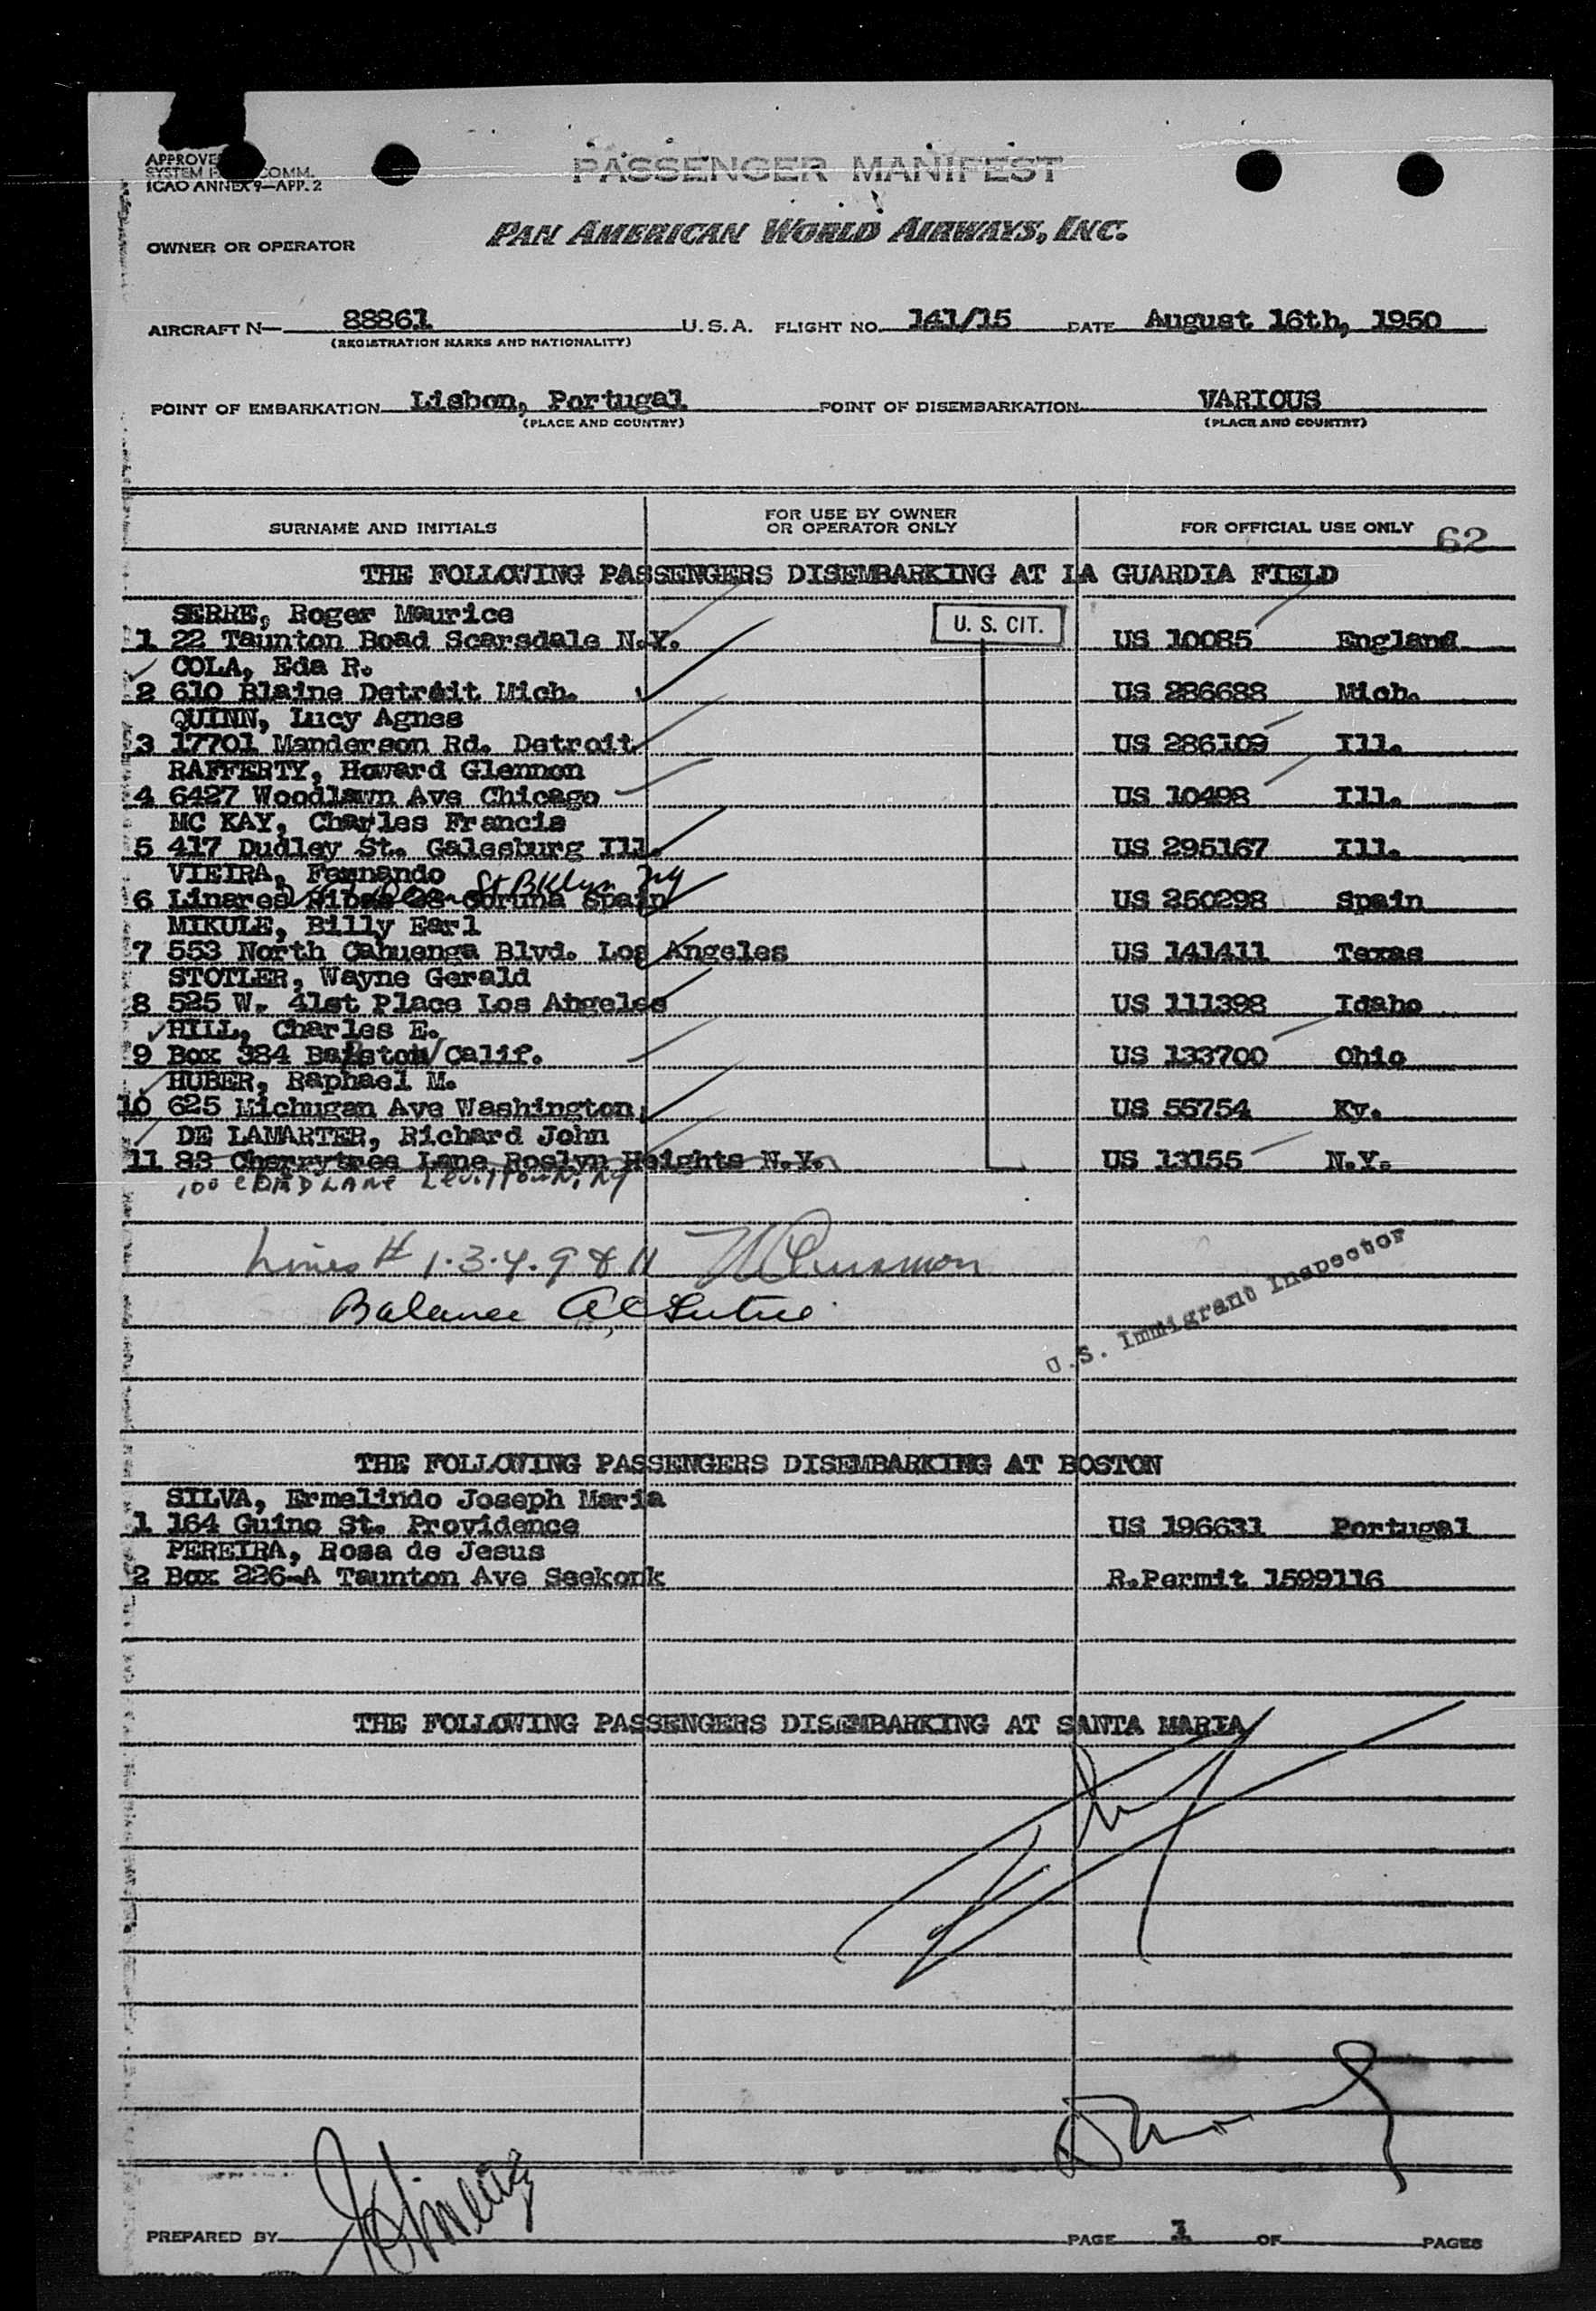 APPROVE
SYSTEM COMM.
ICAO ANNEX 9—APP. 2
PASSENGER MANIFEST
OWNER OR OPERATOR PAN AMERICAN WORLD AIRWAYS, INC.
AIRCRAFT N— 88861 U.S.A. FLIGHT NO. 141/15 DATE August 16th, 1950
(REGISTRATION MARKS AND NATIONALITY)
POINT OF EMBARKATION Lisbon, Portugal POINT OF DISEMBARKATION VARIOUS
(PLACE AND COUNTRY) (PLACE AND COUNTRY)
SURNAME AND INITIALS FOR USE BY OWNER OR OPERATOR ONLY FOR OFFICIAL USE ONLY 62
THE FOLLOWING PASSENGERS DISEMBARKING AT LA GUARDIA FIELD
SERRE, Roger Maurice U. S. CIT.
1 22 Taunton Road Scarsdale N.Y. US 10085 England
COLA, Eda R.
2 610 Blaine Detroit Mich. US 286688 Mich.
QUINN, Lucy Agnes
3 17701 Manderson Rd. Detroit US 286109 Ill.
RAFFERTY, Howard Glennon
4 6427 Woodlawn Ave Chicago US 10498 Ill.
MC KAY, Charles Francis
5 417 Dudley St. Galesburg Ill. US 295167 Ill.
VIEIRA, Fernando St Bklyn NY
6 Linares Coruna Spain US 250298 Spain
MIKULE, Billy Earl
7 553 North Cahuenga Blvd. Los Angeles US 141411 Texas
STOTLER, Wayne Gerald
8 525 W. 41st Place Los Abgeles US 111398 Idaho
HILL, Charles E.
9 Box 384 Barstow Calif. US 133700 Ohio
HUBER, Raphael M.
10 625 Michugan Ave Washington US 55754 Ky.
DE LAMARTER, Richard John
11 88 Cherrytree Lane Roslyn Heights N.Y. US 13155 N.Y.
100 LANE LEVITTOWN, NY
Lines # 1.3.4.9 & 11
Balance
U.S. Immigrant Inspector
THE FOLLOWING PASSENGERS DISEMBARKING AT BOSTON
SILVA, Ermelindo Joseph Maria
1 164 Guino St. Providence US 196631 Portugal
PEREIRA, Rosa de Jesus
2 Box 226-A Taunton Ave Seekonk R.Permit 1599116
THE FOLLOWING PASSENGERS DISEMBARKING AT SANTA MARIA
PREPARED BY PAGE 1 OF PAGES